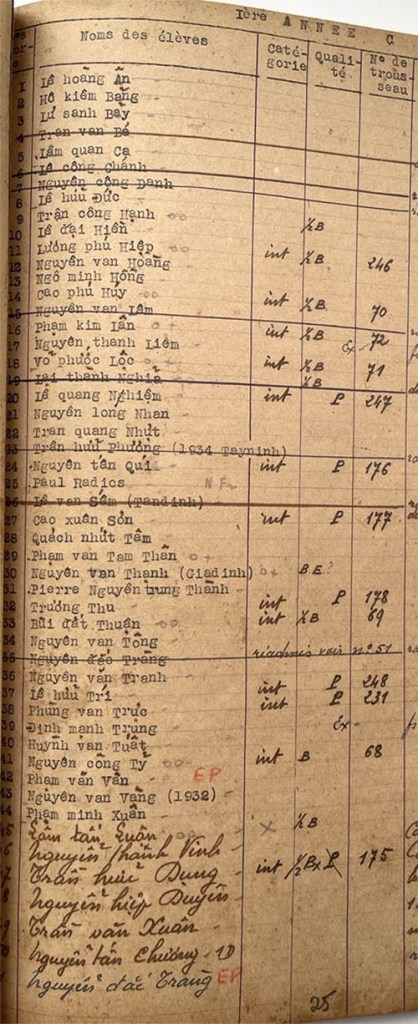 1ère ANNEE C
Noms des élèves Caté-gorie Quali-té N° de trous-seau
1 Lê hoàng Ân
2 Hồ kiêm Bảng
3 Lư sanh Bảy
4 Trần van Bé
5 Lâm quan Cạ
6 Lê công Chánh
7 Nguyễn công Danh
8 Lê hữu Đức
9 Trần công Hạnh
10 Lê đại Hiến ½ B
11 Lương phú Hiệp int ½ B 246
12 Nguyễn van Hoàng
13 Ngô minh Hồng
14 Cao phú Húy int ½ B 70
15 Nguyễn van Lâm
16 Phạm kim Lân int ½ B 72
17 Nguyễn thanh Liêm Ex
18 Võ phước Lộc int ½ B 71
19 Lại thành Nghĩa ½ B
20 Lê quang Nghiệm int P 247
21 Nguyễn long Nhan
22 Trần quang Nhựt
23 Trần hữu Phương (1934 Tayninh)
24 Nguyễn tấn Quí int P 176
25 Paul Radics
26 Lê van Sấm (Tandinh)
27 Cao xuân Sơn int P 177
28 Quách nhứt Tâm
29 Phạm van Tam Thân
30 Nguyễn van Thanh (Giadinh) B E?
31 Pierre Nguyễn trung Thành P 178
32 Trương Thu int
33 Bùi đắt Thuận int ½ B 69
34 Nguyễn van Tòng
35 Nguyễn đắc Trang réadmis voir n° 51
36 Nguyễn van Tranh int P 248
37 Lê hữu Trí int P 231
38 Phùng van Trực
39 Đinh mạnh Trung Ex
40 Huỳnh van Tuất
41 Nguyễn công Tỷ int B 68
42 Phạm văn Vân EP
43 Nguyễn van Vàng (1932)
44 Phạm minh Xuân
45 Lâm tấn Luân × ½ B
46 Nguyễn Thành Vinh
Trần hữu Dung int ½ B P 175
Nguyễn hiệp Duyên
Trần văn Xuân
Nguyễn tấn Chương
Nguyễn đắc Trang EP
25